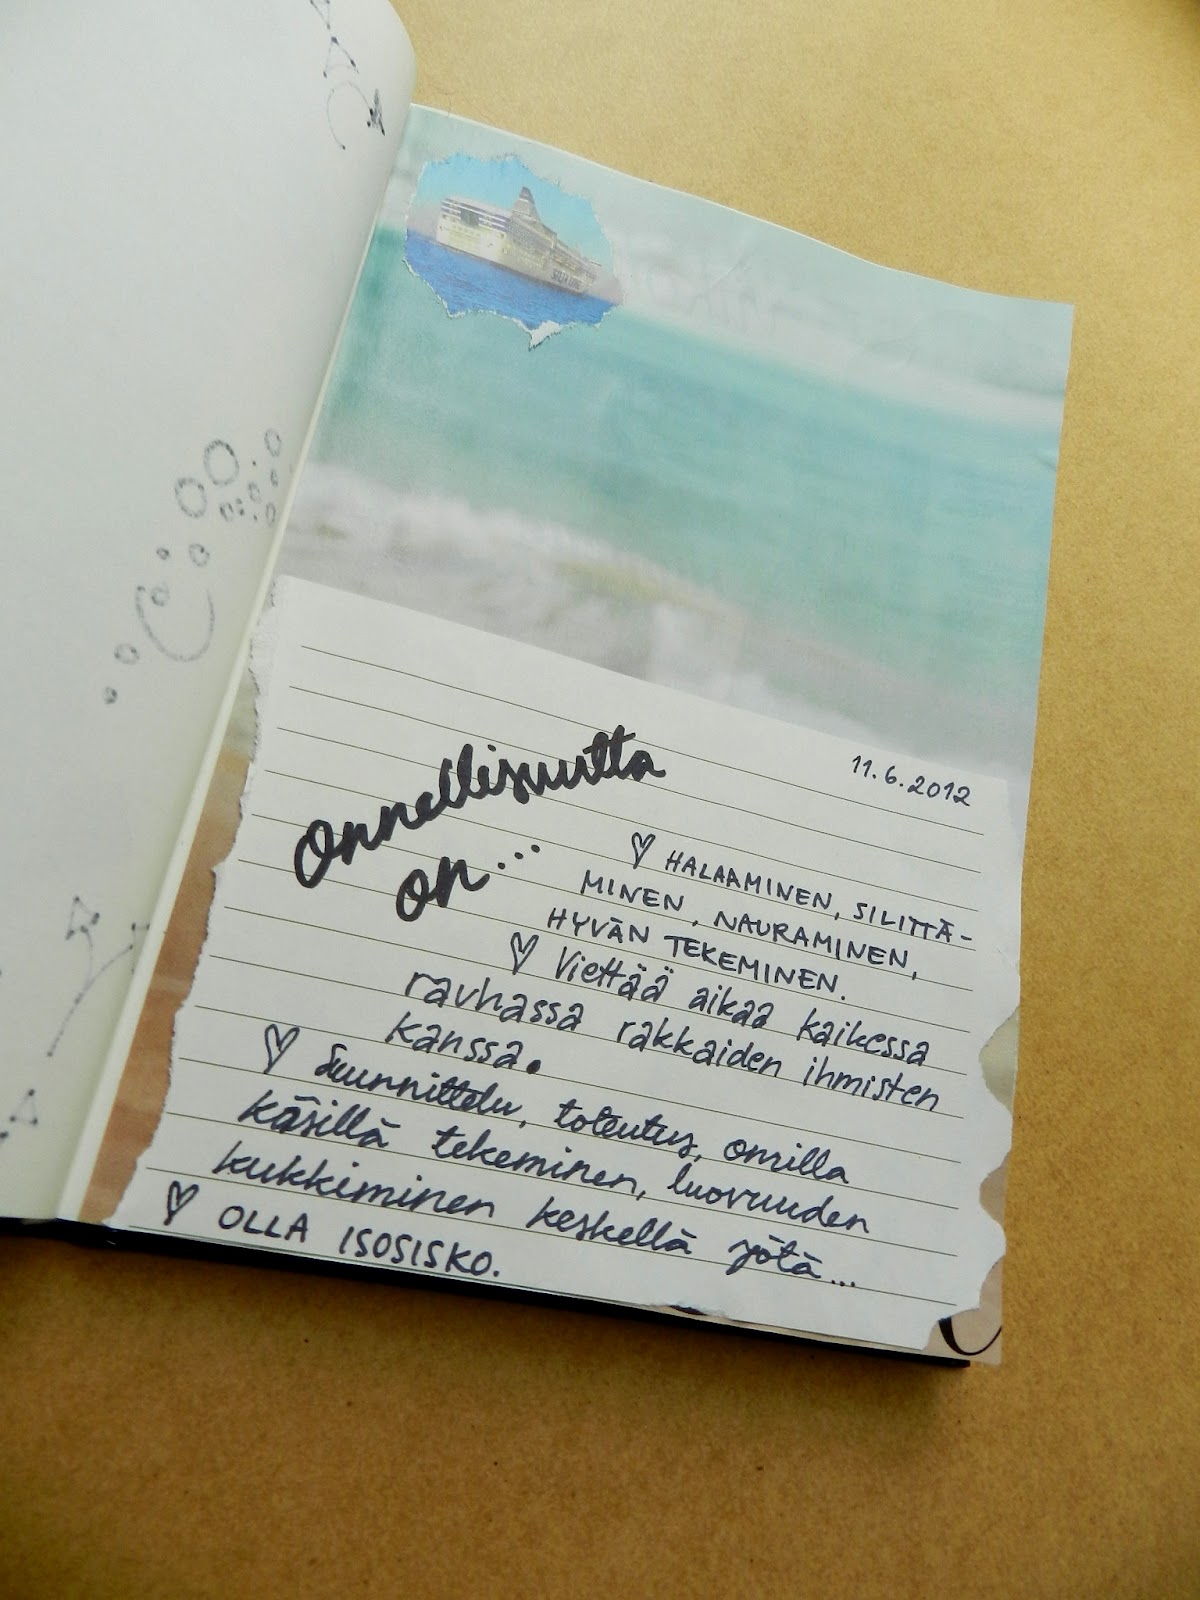 SILJA LINE
11.6.2012
Onnellisuutta
on...
♡ HALAAMINEN, SILITTÄ-
MINEN, NAURAMINEN,
HYVÄN TEKEMINEN.
♡ Viettää aikaa kaikessa
rauhassa rakkaiden ihmisten
kanssa.
♡ Suunnittelu, toteutus, omilla
käsillä tekeminen, luovuuden
kukkiminen keskellä yötä...
♡ OLLA ISOSISKO.